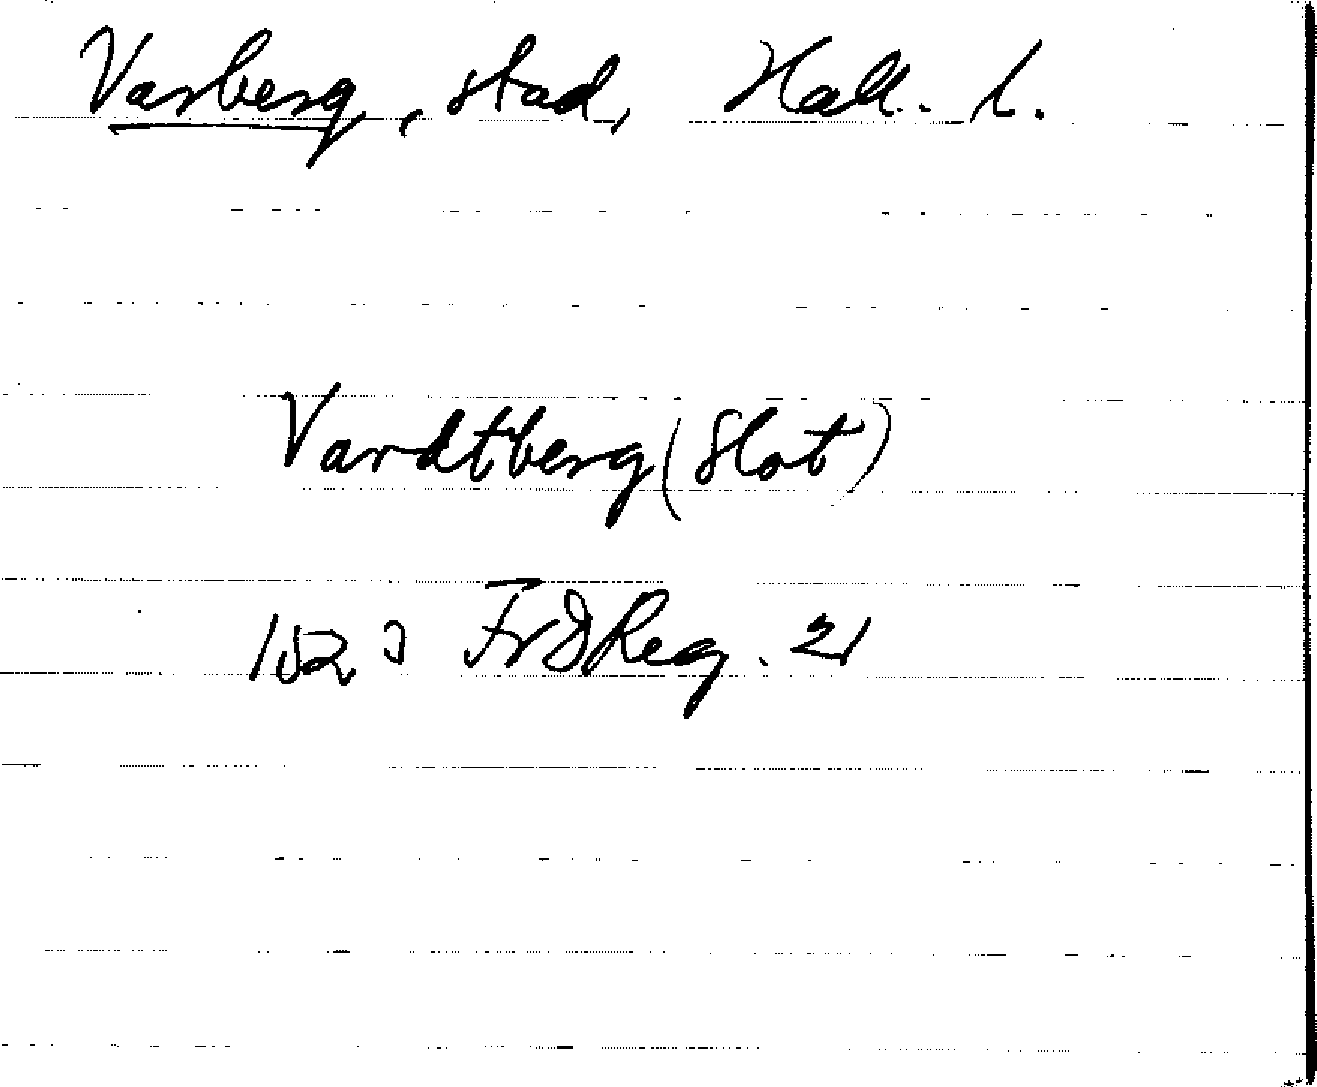 Varberg, stad, Hall. l.
Vardtberg (Slot)
1523 FrIReg. 21